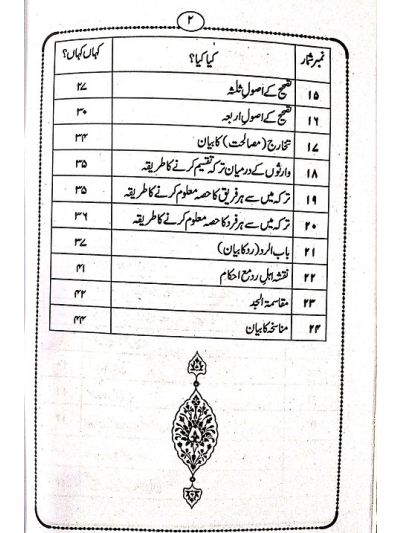 ۲
نمبر شمار کیا کیا؟ کہاں کہاں؟
۱۵ تصحیح کے اصول ثلثہ ۲۷
۱۶ تصحیح کے اصول اربعہ ۳۰
۱۷ تخارج (مصالحت) کا بیان ۳۴
۱۸ وارثوں کے درمیان ترکہ تقسیم کرنے کا طریقہ ۳۵
۱۹ ترکہ میں سے ہر فریق کا حصہ معلوم کرنے کا طریقہ ۳۵
۲۰ ترکہ میں سے ہر فرد کا حصہ معلوم کرنے کا طریقہ ۳۶
۲۱ باب الرد (رد کا بیان) ۳۷
۲۲ نقشہ اہلِ رد مع احکام ۴۱
۲۳ مقاسمۃ الجد ۴۲
۲۴ مناسخہ کا بیان ۴۴